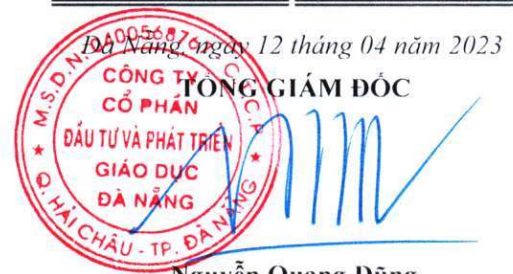 Đà Nẵng, ngày 12 tháng 04 năm 2023
TỔNG GIÁM ĐỐC
M.S.D.N: 0400568767 - C.T.C.P
CÔNG TY
CỔ PHẦN
ĐẦU TƯ VÀ PHÁT TRIỂN
GIÁO DỤC
ĐÀ NẴNG
Q. HẢI CHÂU - TP. ĐÀ NẴNG
Nguyễn Quang Dũng